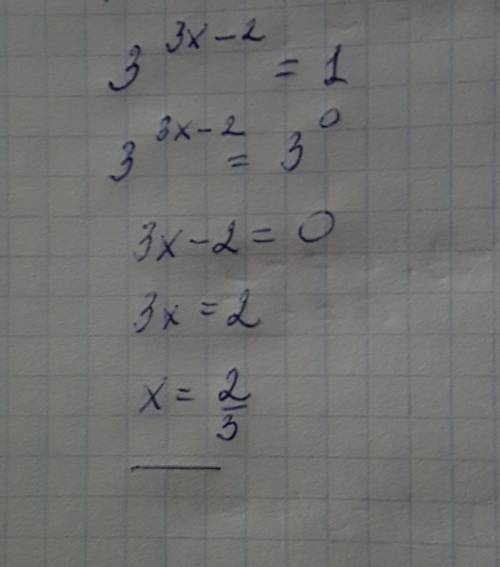 3^{3x-2} = 1
3^{3x-2} = 3^0
3x-2=0
3x=2
x=\frac{2}{3}